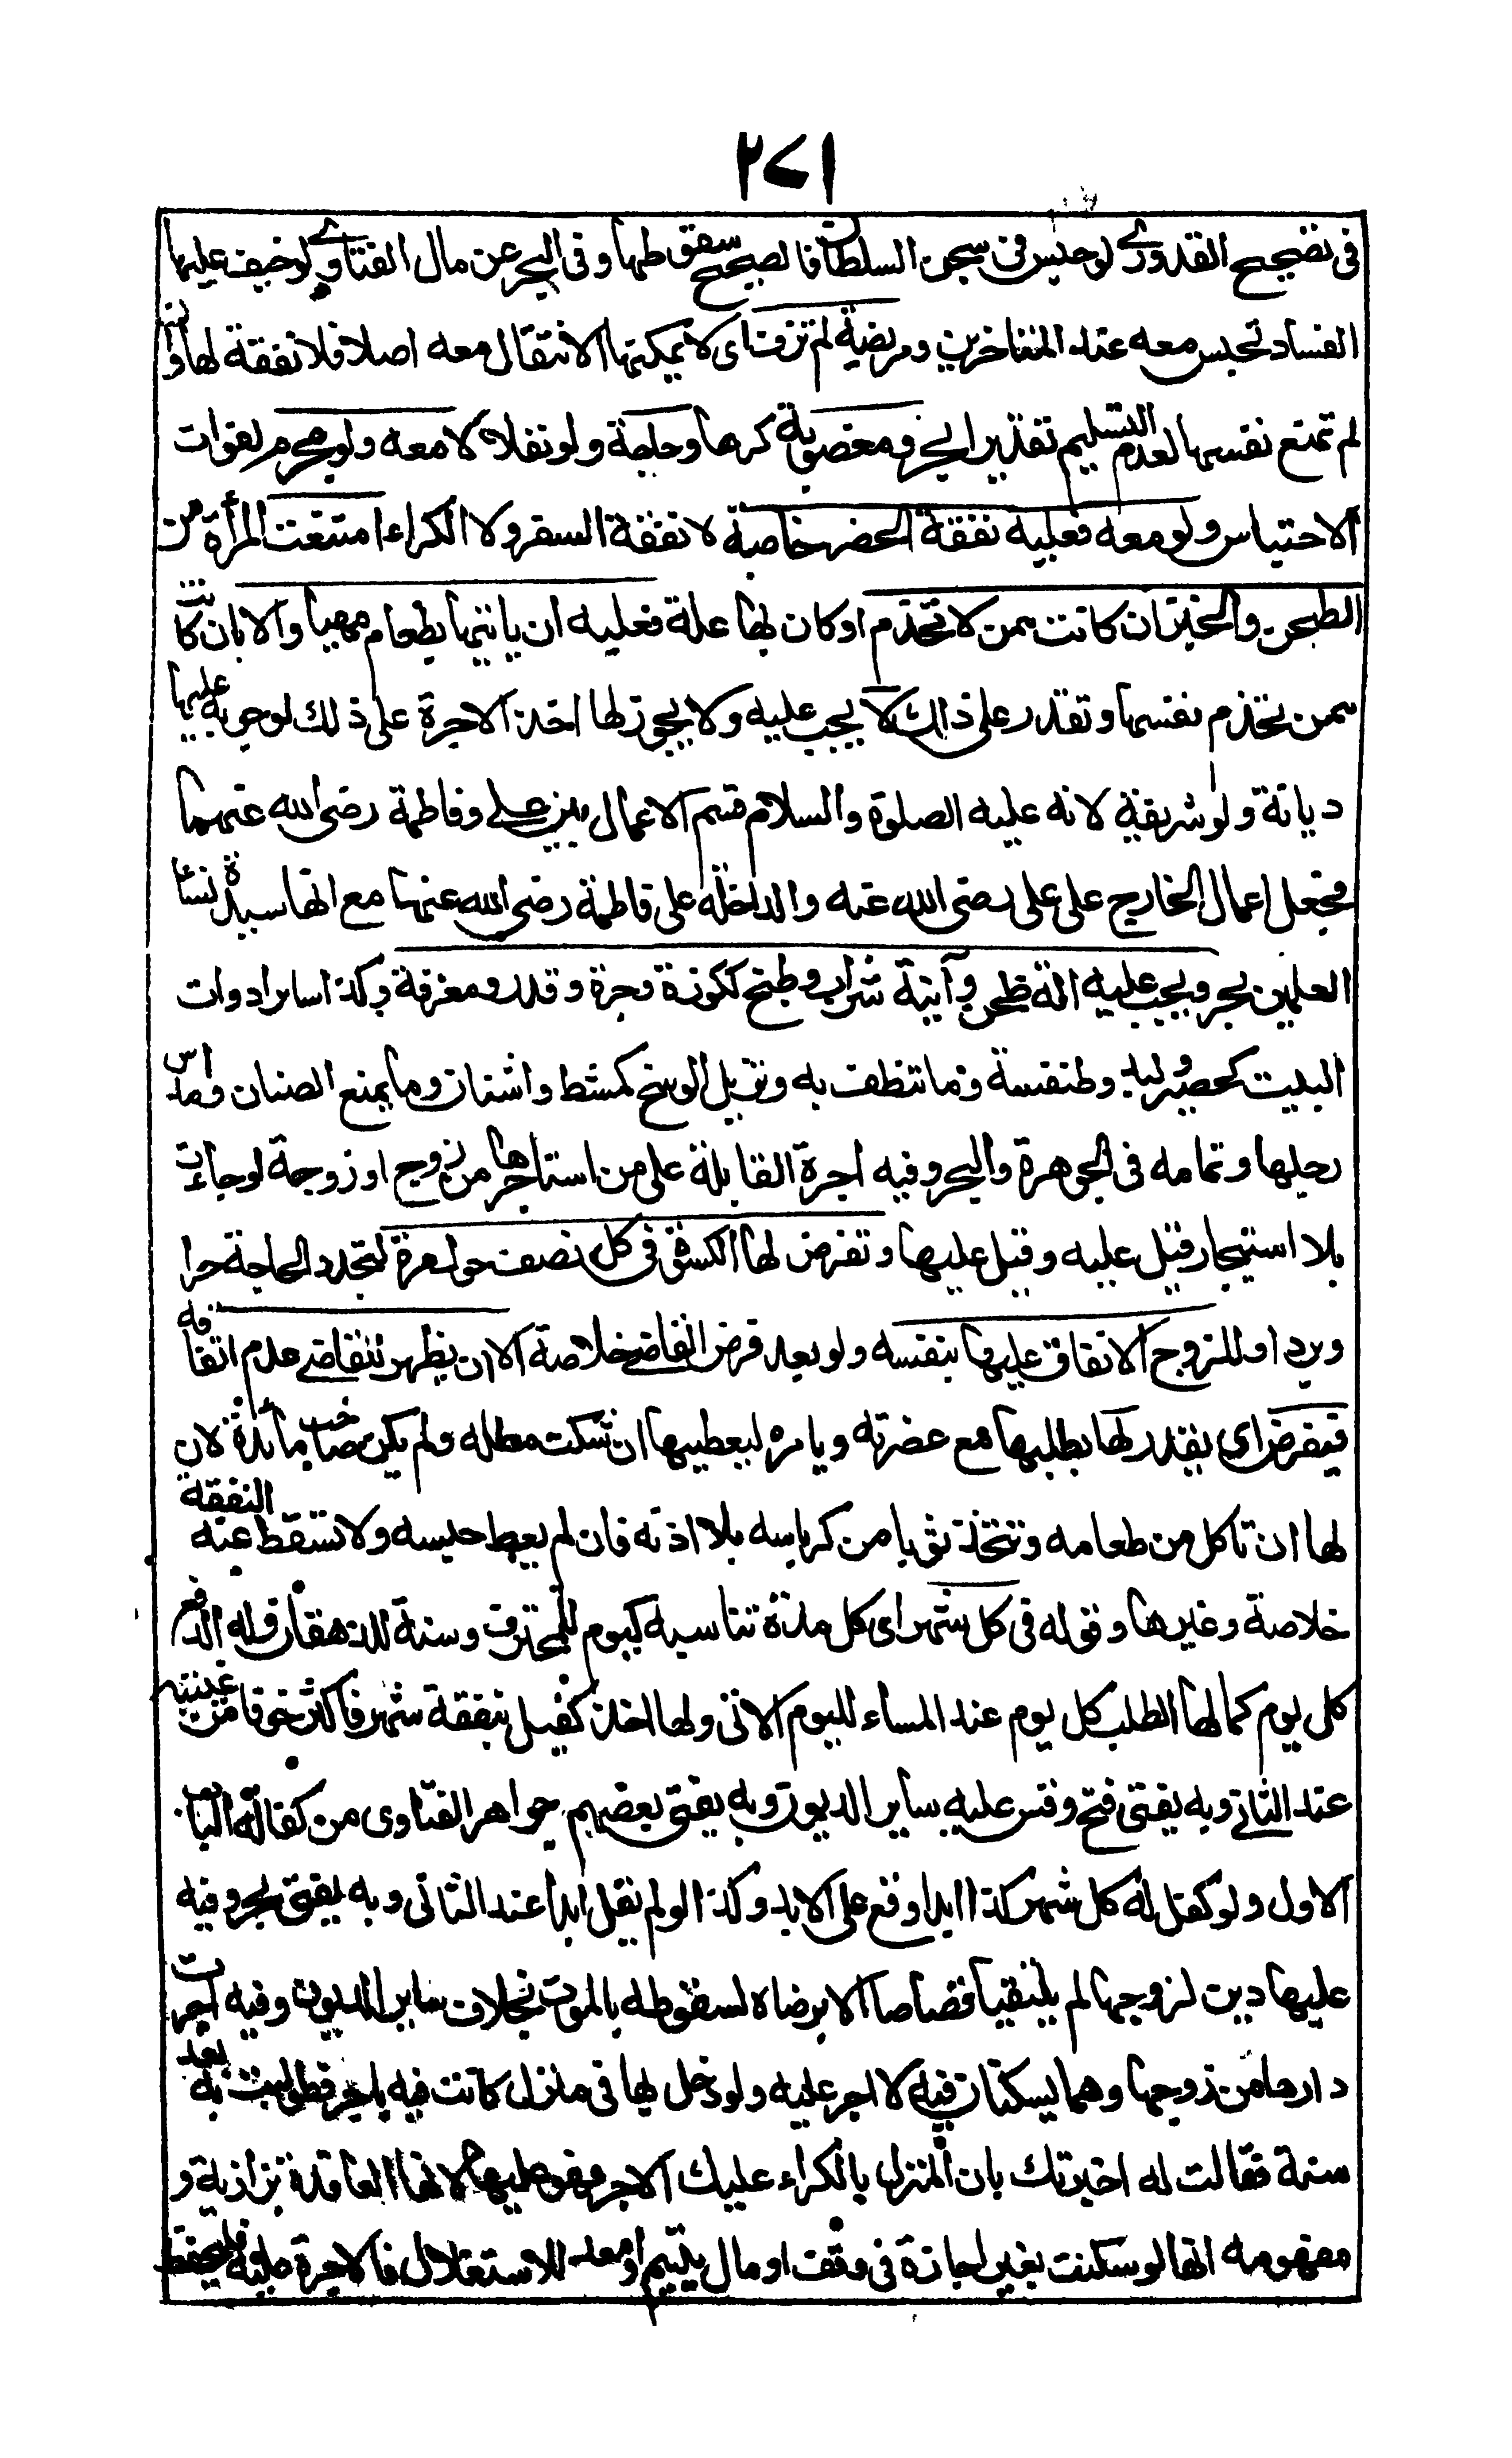 ٢٧١
فى تصحيح القدورى لو حبس فى سجن السلطان فالصحيح سقوطها وفى البحر عن مال الفتاوى لو خيف عليها
الفساد تحبس معه عند المتأخرين ومريضة لم تزف اى لا يمكنها الانتقال معه اصلا فلا نفقة لها وان
لم تمنع نفسها لعدم التسليم تقديرا بحر ومغصوبة كرها وحاجة ولو نفلا لا معه ولو بمحرم لفوات
الاحتباس ولو معه فعليه نفقة الحضر خاصة لا نفقة السفر ولا الكراء امتنعت المرأة من
الطحن والخبز ان كانت ممن لا تخدم او كان بها علة فعليه ان ياتيها بطعام مهيا والا بان كانت
ممن تخدم نفسها وتقدر على ذلك لا يجب عليه ولا يجوز لها اخذ الاجرة على ذلك لوجوبه عليها
ديانة ولو شريفة لانه عليه الصلوة والسلام قسم الاعمال بين على وفاطمة رضى الله عنهما
فجعل اعمال الخارج على على رضى الله عنه والداخلة على فاطمة رضى الله عنها مع انها سيدة نساء
العلمين بحر ويجب عليه الة طحن وآنية شراب وطبخ ككوزة وجرة وقدر ومغرفة وكذا ساير ادوات
البيت كحصير ولبد وطنفسة وما تنظف به وتزيل الوسخ كمشط واشنان وما يمنع الصنان ومداس
رجلها وتمامه فى الجوهرة والبحر وفيه اجرة القابلة على من استاجرها من زوج او زوجة لو جاءت
بلا استيجار قيل عليه وقيل عليها وتفرض لها الكسوة فى كل نصف حول مرة لتجدد الحاجة حرا
وبردا وللزوج الانفاق عليها بنفسه ولو بعد فرض القاضى خلاصة الا ان يظهر للقاضى عدم انفاقه
فيفرض اى يقدر لها بطلبها مع حضرته ويامره ليعطيها ان شكت مطله ولم يكن صاحب مائدة لان
لها ان تاكل من طعامه وتتخذ ثوبا من كرباسه بلا اذنه فان لم يعط حبسه ولا تسقط عنه النفقة
خلاصة وغيرها وقوله فى كل شهر اى كل مدة تناسبه كيوم للمحترف وسنة للدهقان وله الدفع
كل يوم كما لها الطلب كل يوم عند المساء لليوم الاتى ولها اخذ كفيل بنفقة شهر فاكثر خوفا من غيبته
عند الثانى وبه يفتى فتح وقس عليه ساير الديون وبه يفتى بعضهم جواهر الفتاوى من كفالة الباب
الاول ولو كفل له كل شهر كذا ابدا وقع على الابد وكذا لو لم يقل ابدا عند الثانى وبه يفتى بحر وفيه
عليها دين لزوجها لم يلتقيا قصاصا الا برضاه لسقوطه بالموت بخلاف ساير الديون وفيه اجرت
دارها من زوجها وهما يسكنان فيه لا اجر عليه ولو دخل بها فى منزل كانت فيه باجر فطولبت به بعد
سنة فقالت له اخبرتك بان المنزل بالكراء عليك الاجر فهو عليها لانها العاقدة بزازية و
مفهومه انها لو سكنت بغير اجازة فى وقف او مال يتيم او معد للاستغلال فالاجرة عليه فليحفظ